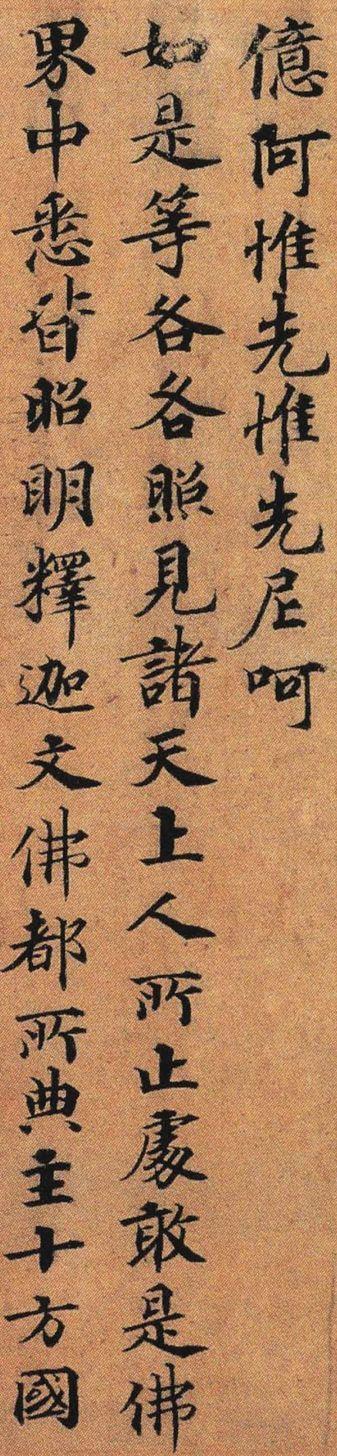 億阿惟先惟先尼呵
如是等各各照見諸天上人所止處敢是佛
界中悉皆昭明釋迦文佛都所典主十方國